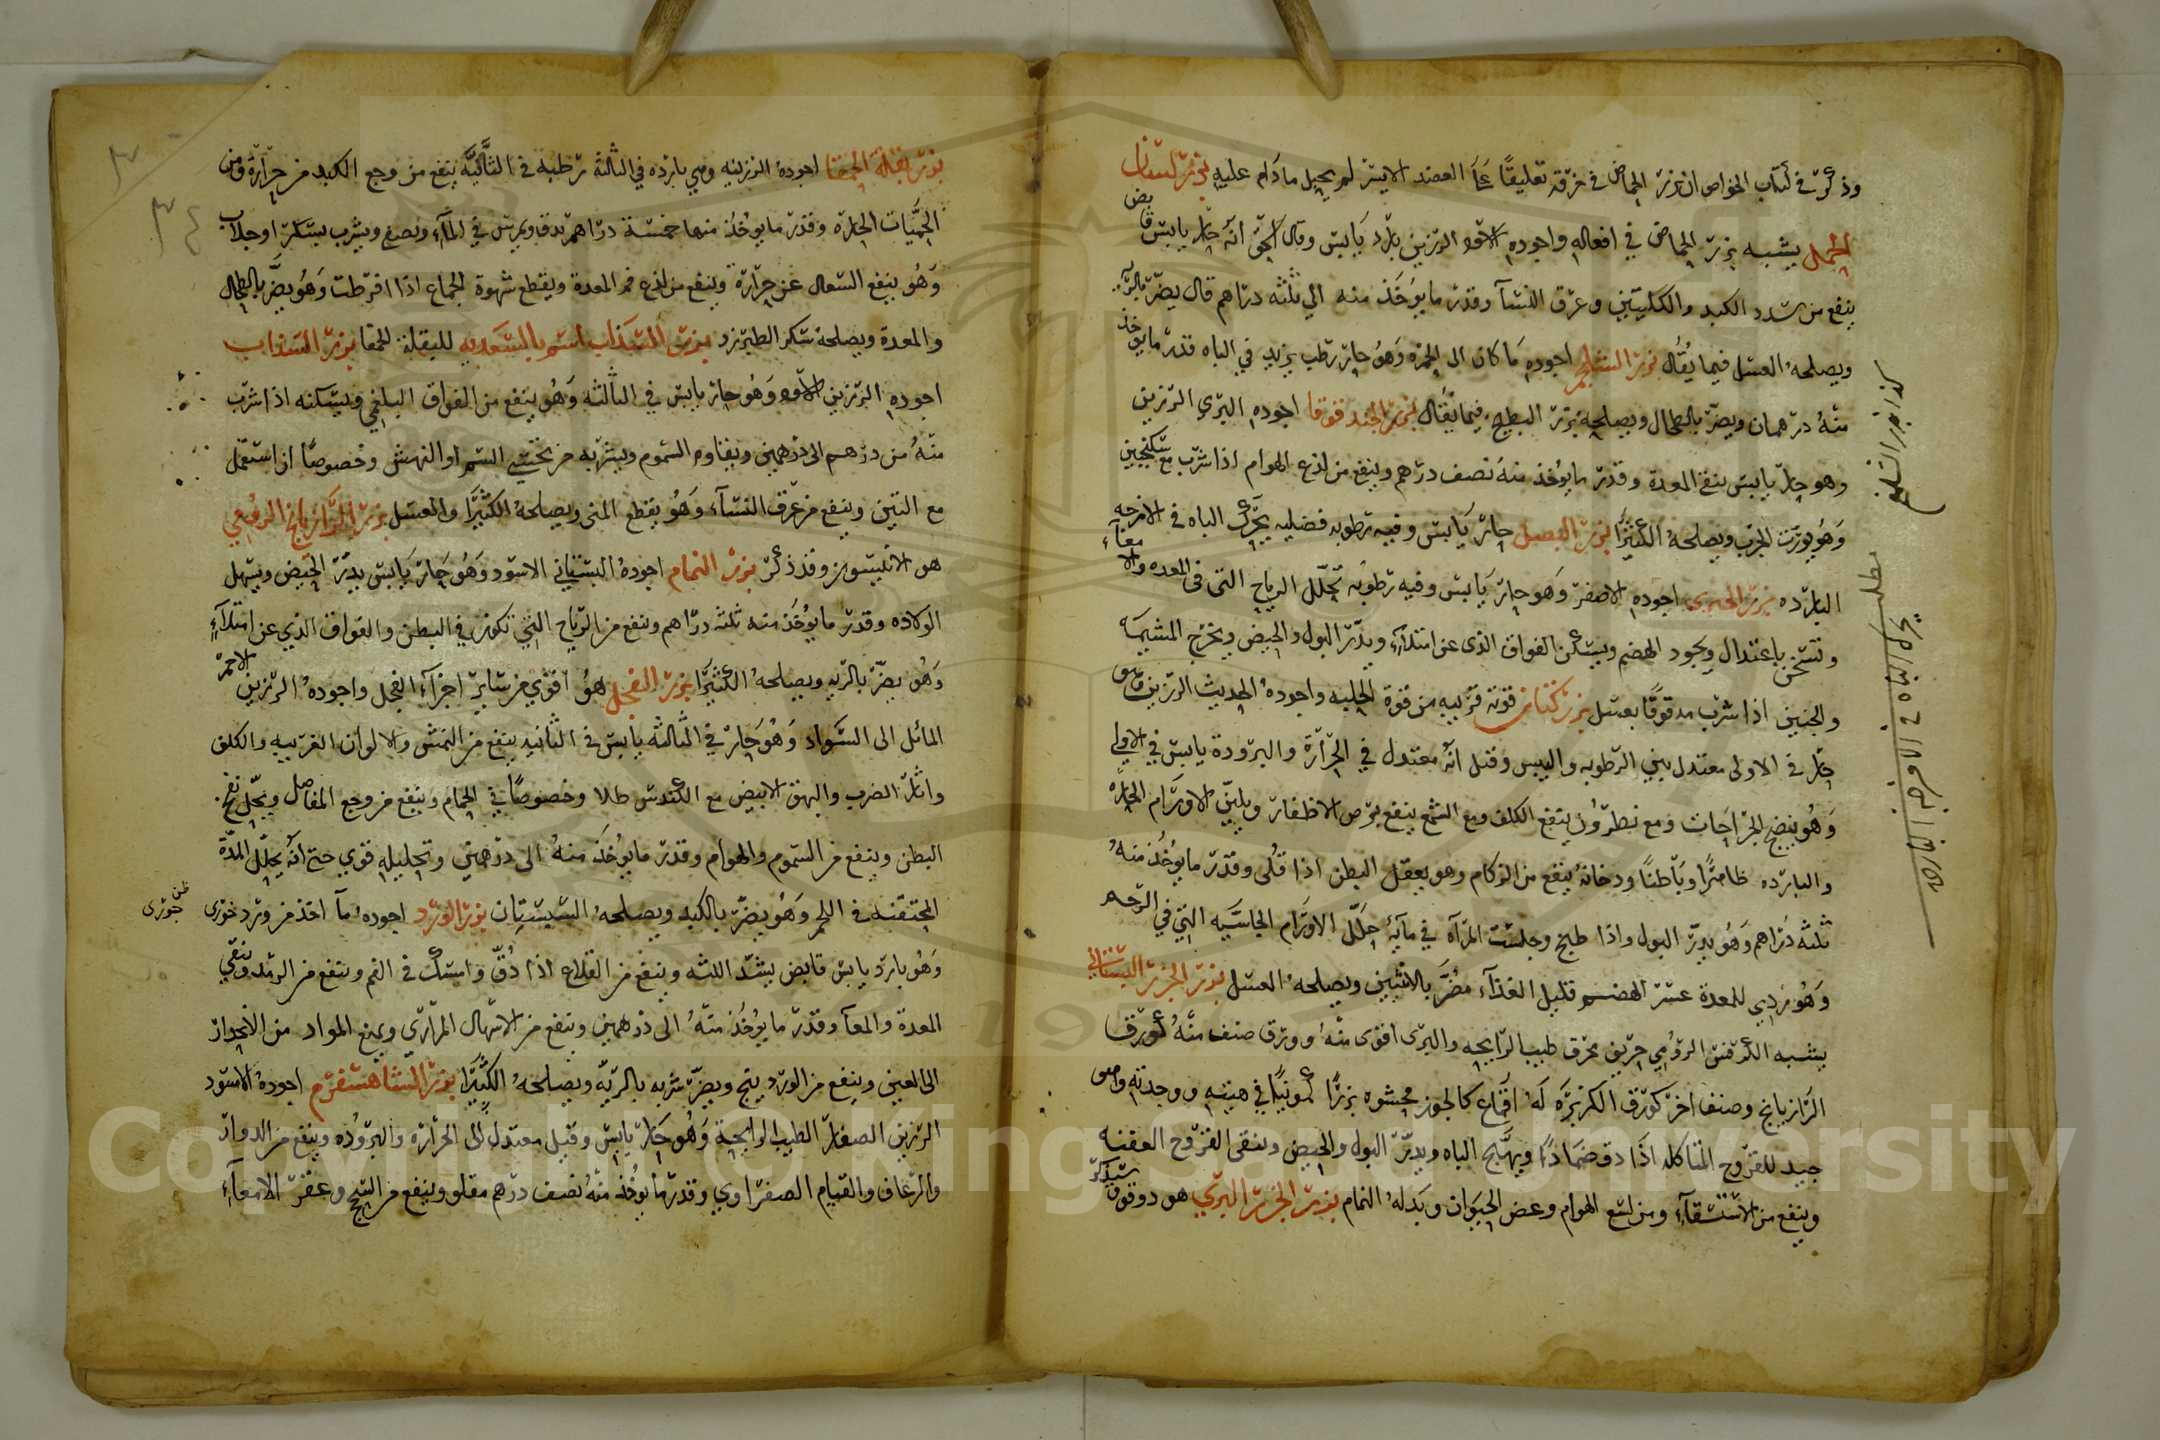 وذكر في كتاب الخواص ان بزر الحماض في خرقة تعليقًا على العضد الايسر لم يحبل مادام عليه بزر لسان
الحمل يشبه بزر الحماض في افعاله واجوده الاسود الرزين بارد يابس وقال اسحق انه حار يابس قابض
ينفع من سدد الكبد والكليتين وعرق النسآ وقدر ما يؤخذ منه الي ثلثه دراهم قال يضر بالرية
ويصلحه العسل فيما يقال بزر السلجم اجوده ما كان الى الحمرة وهو حار رطب يزيد في الباه قدر ما يوخذ
منه درهمان ويضر بالطحال ويصلحه بزر البطيخ فيما يقال بزر الحندقوقا اجوده البري الرزين
وهو حار يابس ينفع المعدة وقدر ما يؤخذ منه نصف درهم وينفع من لذع الهوام اذا شرب مع سكنجبين
وهو يورث الجرب ويصلحه الكثيرا بزر الفصيل حار يابس وفيه رطوبه فضليه يحرك الباه في الامزجه
البارده بزر الجزر اجوده الاصفر وهو حار يابس وفيه رطوبه تحلل الرياح التي في المعده والامعآء
وتسخن باعتدال ويجود الهضم ويسكن الفواق الذى عن امتلآء ويدر البول والحيض ويخرج المشيمه
والجنين اذا شرب مدقوقًا بعسل بزر كتان قوته قريبه من قوة الحلبه واجوده الحديث الرزين وهو
حار في الاولى معتدل بين الرطوبه واليبس وقيل انه معتدل في الحرارة والبرودة يابس في الاولى
وهو ينضج الجراحات ومع نطرون ينفع الكلف ومع الشمع ينفع برص الاظفار ويلين الاورام الحاره
والبارده ظاهرًا وباطنًا ودخانه ينفع من الزكام وهو يعقل البطن اذا قلى وقدر ما يؤخذ منه
ثلثه دراهم وهو يدر البول واذا طبخ وجلست المرآه في مآئه حلل الاورام الجاسيه التي في الرحم
وهو ردي للمعدة عسر الهضم قليل الغذآء مضر بالانثيين ويصلحه العسل بزر الجزر البستاني
يشبه الكرفس الرومي حريف محرق طيب الرايحه والبرى اقوى منه وورق صنف منه كورق
الرازيانج وصنف اخر كورق الكزبرة له اقماع كالجوز محشوه بزرًا كمونيًا في هيئته وحدته وهو
جيد للقروح المتاكله اذا دق ضمادًا ويهيج الباه ويدر البول والحيض وينقى القروح العفنه
وينفع من الاستسقآء ومن لسع الهوام وعض الحيوان وبدله النمام بزر الجزر البري هو دوقوا سيذكر
كذا بزر السلجم
مطلب يحرك الباه في الامزجه البارده
بزر بقلة الحمقا اجوده الرزينه وهي بارده في الثالثة رطبه في الثانية ينفع من وجع الكبد من حرارة ومن
الحميات الحارة وقدر ما يؤخذ منها خمسة دراهم يدق ويمرس في المآء ويصفى ويشرب بسكر او جلاب
وهو ينفع السعال عن حرارة وينفع من لذع فم المعدة ويقطع شهوة الجماع اذا افرطت وهو يضر بالطحال
والمعدة ويصلحه سكر الطبرزد بزر السذاب اسم بالسعدیه للبقلة الحمقا بزر السذاب
اجوده الرزين الاسود وهو حار يابس في الثالثه وهو ينفع من الفواق البلغمي ويسكنه اذا شرب
منه من درهم الى درهمين ويقاوم السموم ويشربه من يخشى السم او النهش وخصوصًا ان استعمل
مع التين وينفع من عرق النسآء وهو يقطع المني ويصلحه الكثيرا والعسل بزر الرازيانج الرومي
هو الانيسون وقد ذكر بزر النمام اجوده البستاني الاسود وهو حار يابس يدر الحيض ويسهل
الولاده وقدر ما يؤخذ منه ثلثه دراهم وينفع من الرياح التي تكون في البطن والفواق الذي عن امتلآء
وهو يضر بالريه ويصلحه الكثيرا بزر الفجل هو اقوي من سائر اجزآء الفجل واجوده الرزين الاحمر
المائل الى السواد وهو حار في الثالثه يابس في الثانيه ينفع من النمش والالوان الغريبه والكلف
واثار الضرب والبهق الابيض مع الكندس طلا وخصوصًا في الحمام وينفع من وجع المفاصل ويحلل نفخ
البطن وينفع من السموم والهوام وقدر ما يؤخذ منه الى درهمين وتحليله قوي حتى انه يحلل المدة
المحتقنه في اللحم وهو يضر بالكبد ويصلحه السبستان بزر الورد اجوده ما اخذ من ورد خوزى
ظن جورى
وهو بارد يابس قابض يشد اللثه وينفع من القلاع اذا دق وامسك في الفم وينفع من الرمد وينقي
المعدة والمعآ وقدر ما يؤخذ منه الى درهمين وينفع من الاسهال المرارى ويمنع المواد من الانحدار
الى العين وينفع من الورد ينج ويضر شربه بالريه ويصلحه الكثيرا بزر الشاهسفرم اجوده الاسود
الرزين الصغار الطيب الرايحة وهو حار يابس وقيل معتدل الى الحرارة والبروده وينفع من الدوار
والرعاف والقيام الصفراوي وقدر ما يؤخذ منه نصف درهم مقلو وينفع من السحج وعقر الامعآء
Copyright © King Saud University